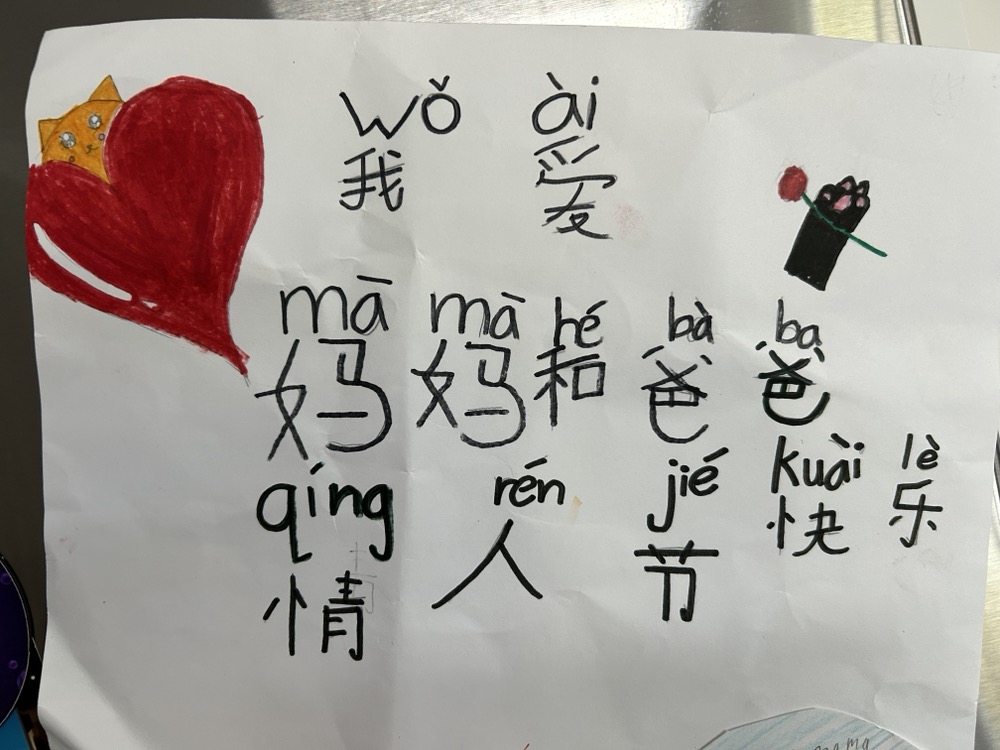 wǒ ài
我 爱
mā mà hé bà ba
妈 妈 和 爸 爸
qíng rén jié kuài lè
情 人 节 快 乐
mama